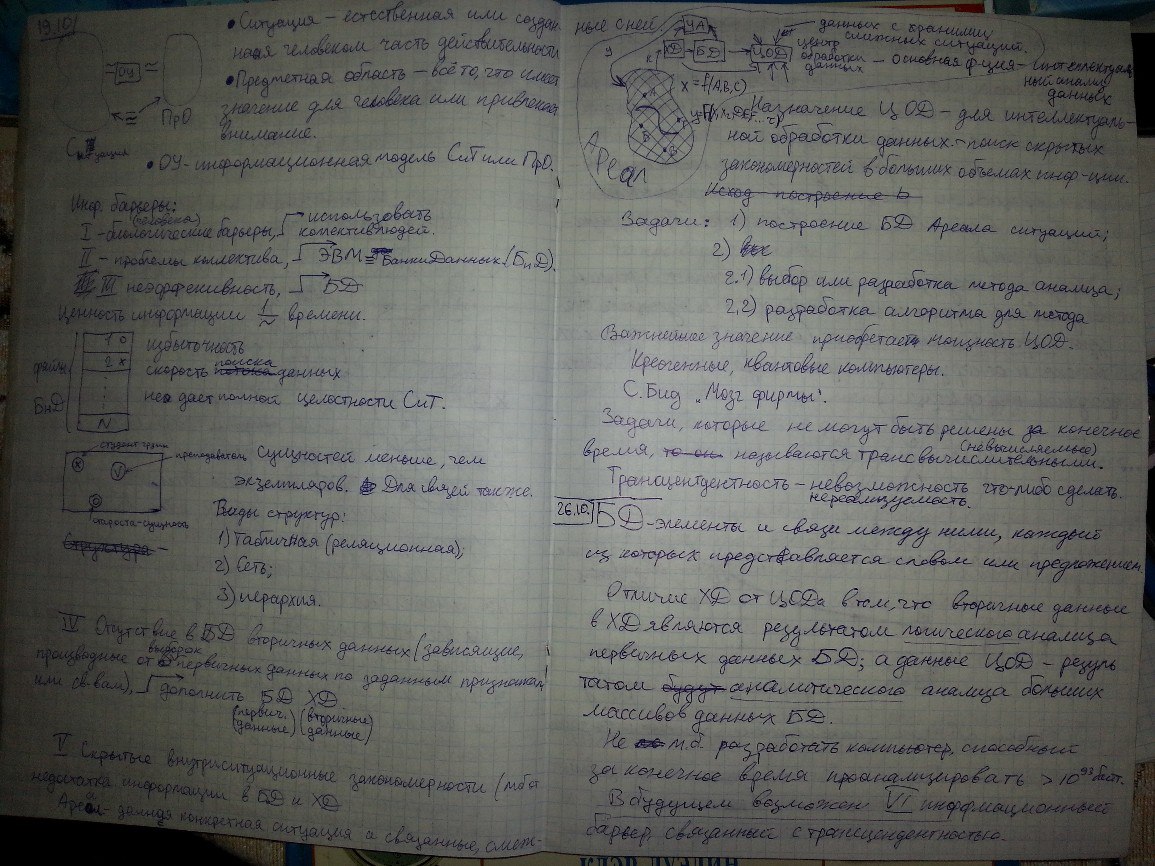 19.10/
• Ситуация – естественная или создан-
ная человеком часть действительности
• Предметная область – всё то, что имеет
значение для человека или привлекает
внимание.
ОУ
ПрО
Ситуация
• ОУ – информационная модель СиТ или ПрО.
Инф. барьеры:
(человека)
I – биологические барьеры, использовать
коллектив людей.
II – проблемы коллектива, ЭВМ Банки Данных (БнД).
III неэффективность, БД
Ценность информации времени.
файлы
БнД
1 о
2 х
N
избыточность
скорость поиска данных
не дает полной целостности СиТ.
студент
преподаватель
староста-сущность
x
v
сущностей меньше, чем
экземпляров. Для связей также.
Виды структур:
Структура –
1) Табличная (реляционная);
2) Сеть;
3) иерархия.
IV Отсутствие в БД вторичных данных (зависящие,
производные от выборок первичных данных по заданным признакам
или св-вам), дополнить БД ХД
(первич. данные) (вторичные данные)
V Скрытые внутриситуационные закономерности (
недостатка информации в БД и ХД
Ареал – данная конкретная ситуация и связанные, смеж-
ные с ней
у
ЧА
ХД
БД
ЦОД
данных с границы
смежных ситуаций.
центр
обработки
данных
– основная ф-ция – интеллектуаль-
ный анализ
данных
x = f(A,B,C)
A
Б
В
Ареал
Назначение ЦОД – для интеллектуаль-
ной обработки данных – поиск скрытых
закономерностей в больших объемах инф-ции.
Исход построение
Задачи: 1) построение БД Ареала ситуаций;
2)
2.1) выбор или разработка метода анализа;
2.2) разработка алгоритма для метода
Важнейшее значение приобретает мощность ЦОД.
Креогенные, квантовые компьютеры.
С. Бид „Мозг фирмы“.
Задачи, которые не могут быть решены за конечное
время, называются трансвычислительными.
(невычисляемые)
Трансцендентность – невозможность что-либо сделать.
нереализуемость.
26.10.
БД – элементы и связи между ними, каждый
из которых представляется словом или предложением.
Отличие ХД от ЦОДа в том, что вторичные данные
в ХД являются результатом логического анализа
первичных данных БД; а данные ЦОД – резуль
татом будут аналитического анализа больших
массивов данных БД.
Не м.б. разработать компьютер, способный
за конечное время проанализировать > 10⁹³ байт.
В будущем возможен VI информационный
барьер, связанный с трансцендентностью.